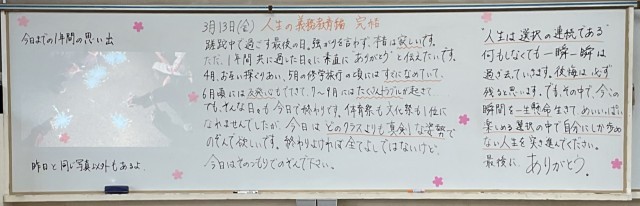 今日までの1年間の思い出
昨日と同じ写真以外もあるよ
3月13日(金) 人生の義務教育編 完結
で過ごす最後の日。強がりを言わず、本音は寂しいです。
ただ、1年間共に過した日々に素直に"ありがとう"と伝えたいです。
4月、お互い探り合い、5月の修学旅行の頃にはすでになめていて、
6月頃には もでてきて、7~9月にはたくさん が起きて
でも、そんな日々も今日で終わりです。体育祭も文化祭も1位に
なれませんでしたが、今日はどのクラスよりも真剣な姿勢で
のぞんで欲しいです。終わりよければ全てよしではないけど、
今日はそのつもりでのぞんで下さい。
"人生は選択の連続である"
何もしなくても一瞬一瞬は
過ぎていきます。後悔は必ず
残ると思います。でも、その中で、今この
瞬間を一生懸命生きて、めいいっぱい
楽しめる選択の中で自分にしか歩め
ない人生を突き進んでください。
最後に、ありがとう。